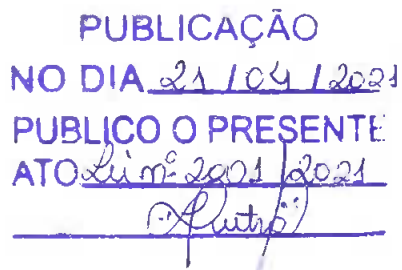 PUBLICAÇÃO
NO DIA 21 / 04 / 2021
PUBLICO O PRESENTE
ATO Lei nº 2901 / 2021